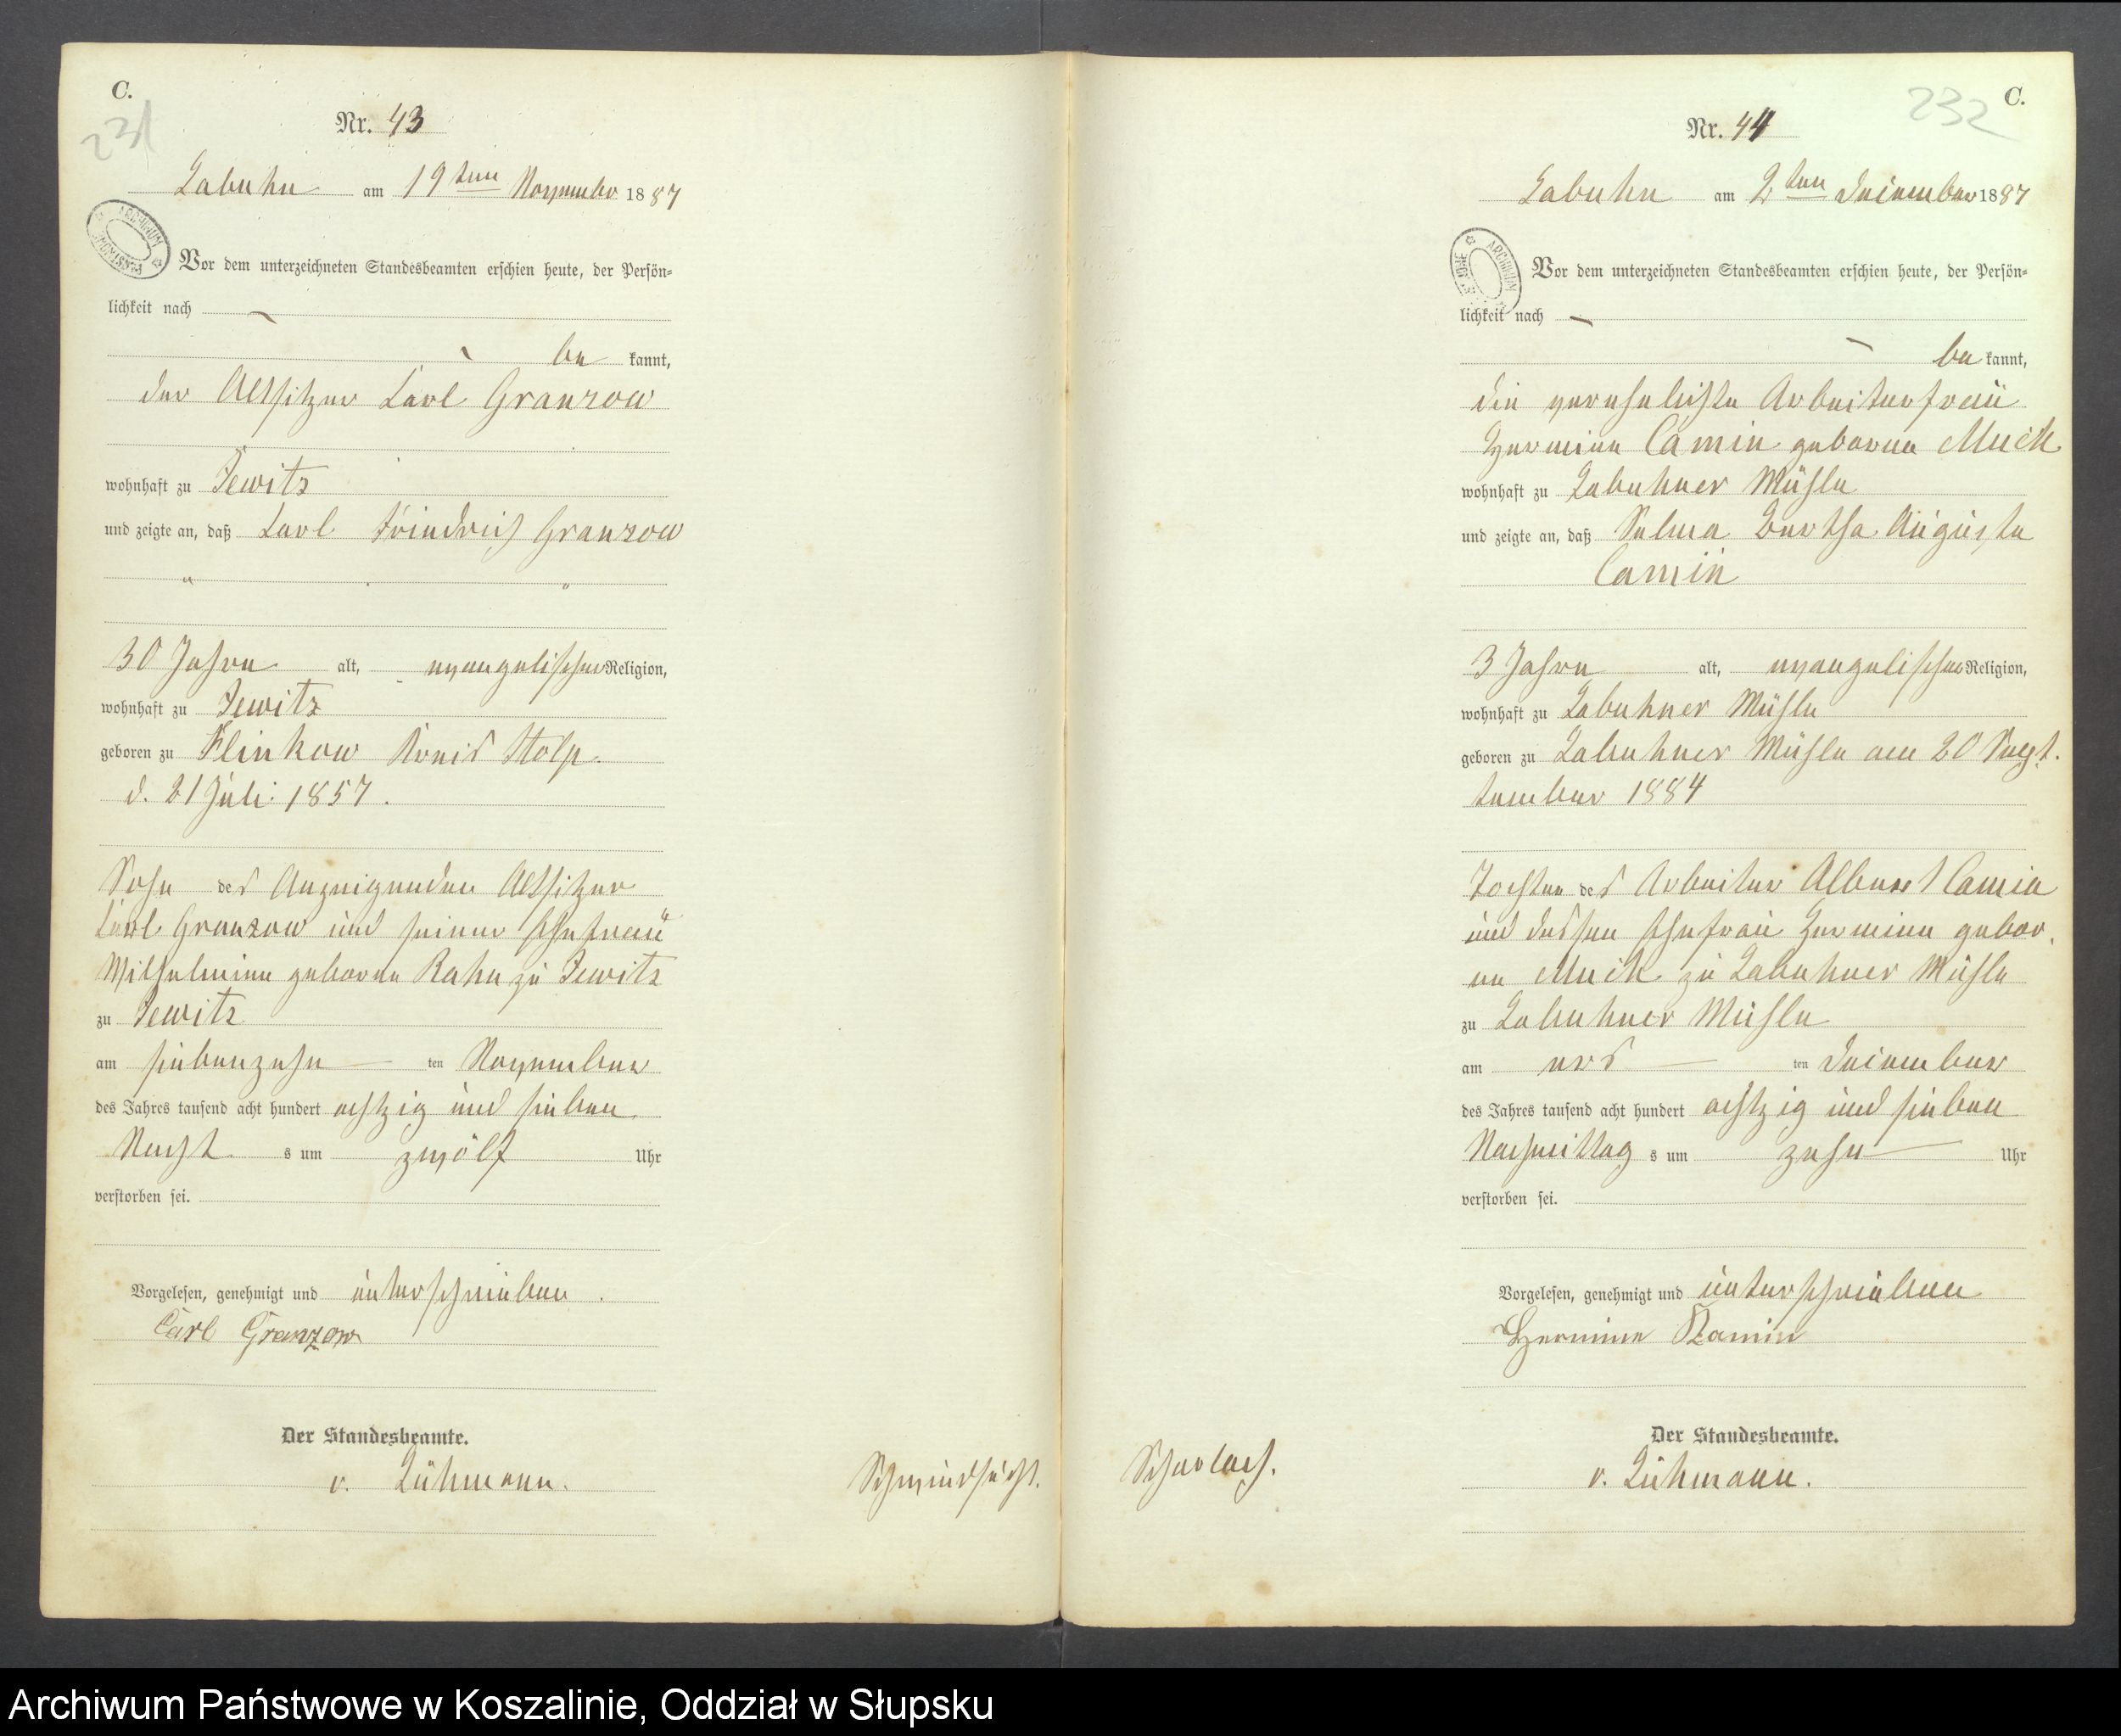 C.
231
Nr. 43
Labuhn am 19ten November 1887
ARCHIWUM
Vor dem unterzeichneten Standesbeamten erschien heute, der Persön=
lichkeit nach
be kannt,
der Altsitzer Carl Granzow
wohnhaft zu Jewitz
und zeigte an, daß Carl Friedrich Granzow
30 Jahre alt, evangelischer Religion,
wohnhaft zu Jewitz
geboren zu Flinkow Kreis Stolp.
d. 21 Juli 1857.
Sohn des Anzeigenden Altsitzer
Carl Granzow und seiner Ehefrau
Wilhelmine geborne Rahn zu Jewitz
zu Jewitz
am siebenzehn ten November
des Jahres tausend acht hundert achtzig und sieben
Nacht s um zwölf Uhr
verstorben sei.
Vorgelesen, genehmigt und unterschrieben.
Carl Granzow
Der Standesbeamte.
v. Lühmann.
Schwindsucht.
C.
232
Nr. 44
Labuhn am 2ten Decembar 1887
ARCHIWUM
Vor dem unterzeichneten Standesbeamten erschien heute, der Persön=
lichkeit nach
be kannt,
die verehelichte Arbeiterfrau
Hermine Camin geborne Muck
wohnhaft zu Labuhner Mühle
und zeigte an, daß Selma Bertha Auguste
Camin
3 Jahre alt, evangelischer Religion,
wohnhaft zu Labuhner Mühle
geboren zu Labuhner Mühle am 20 Sept.
tember 1884
Tochter des Arbeiter Albert Camin
und dessen Ehefrau Hermine gebor.
ne Muck zu Labuhner Mühle
zu Labuhner Mühle
am ers ten December
des Jahres tausend acht hundert achtzig und sieben
Nachmittag s um zehn Uhr
verstorben sei.
Vorgelesen, genehmigt und unterschrieben
Hermine Kamin
Der Standesbeamte.
v. Lühmann.
Scharlach.
Archiwum Państwowe w Koszalinie, Oddział w Słupsku